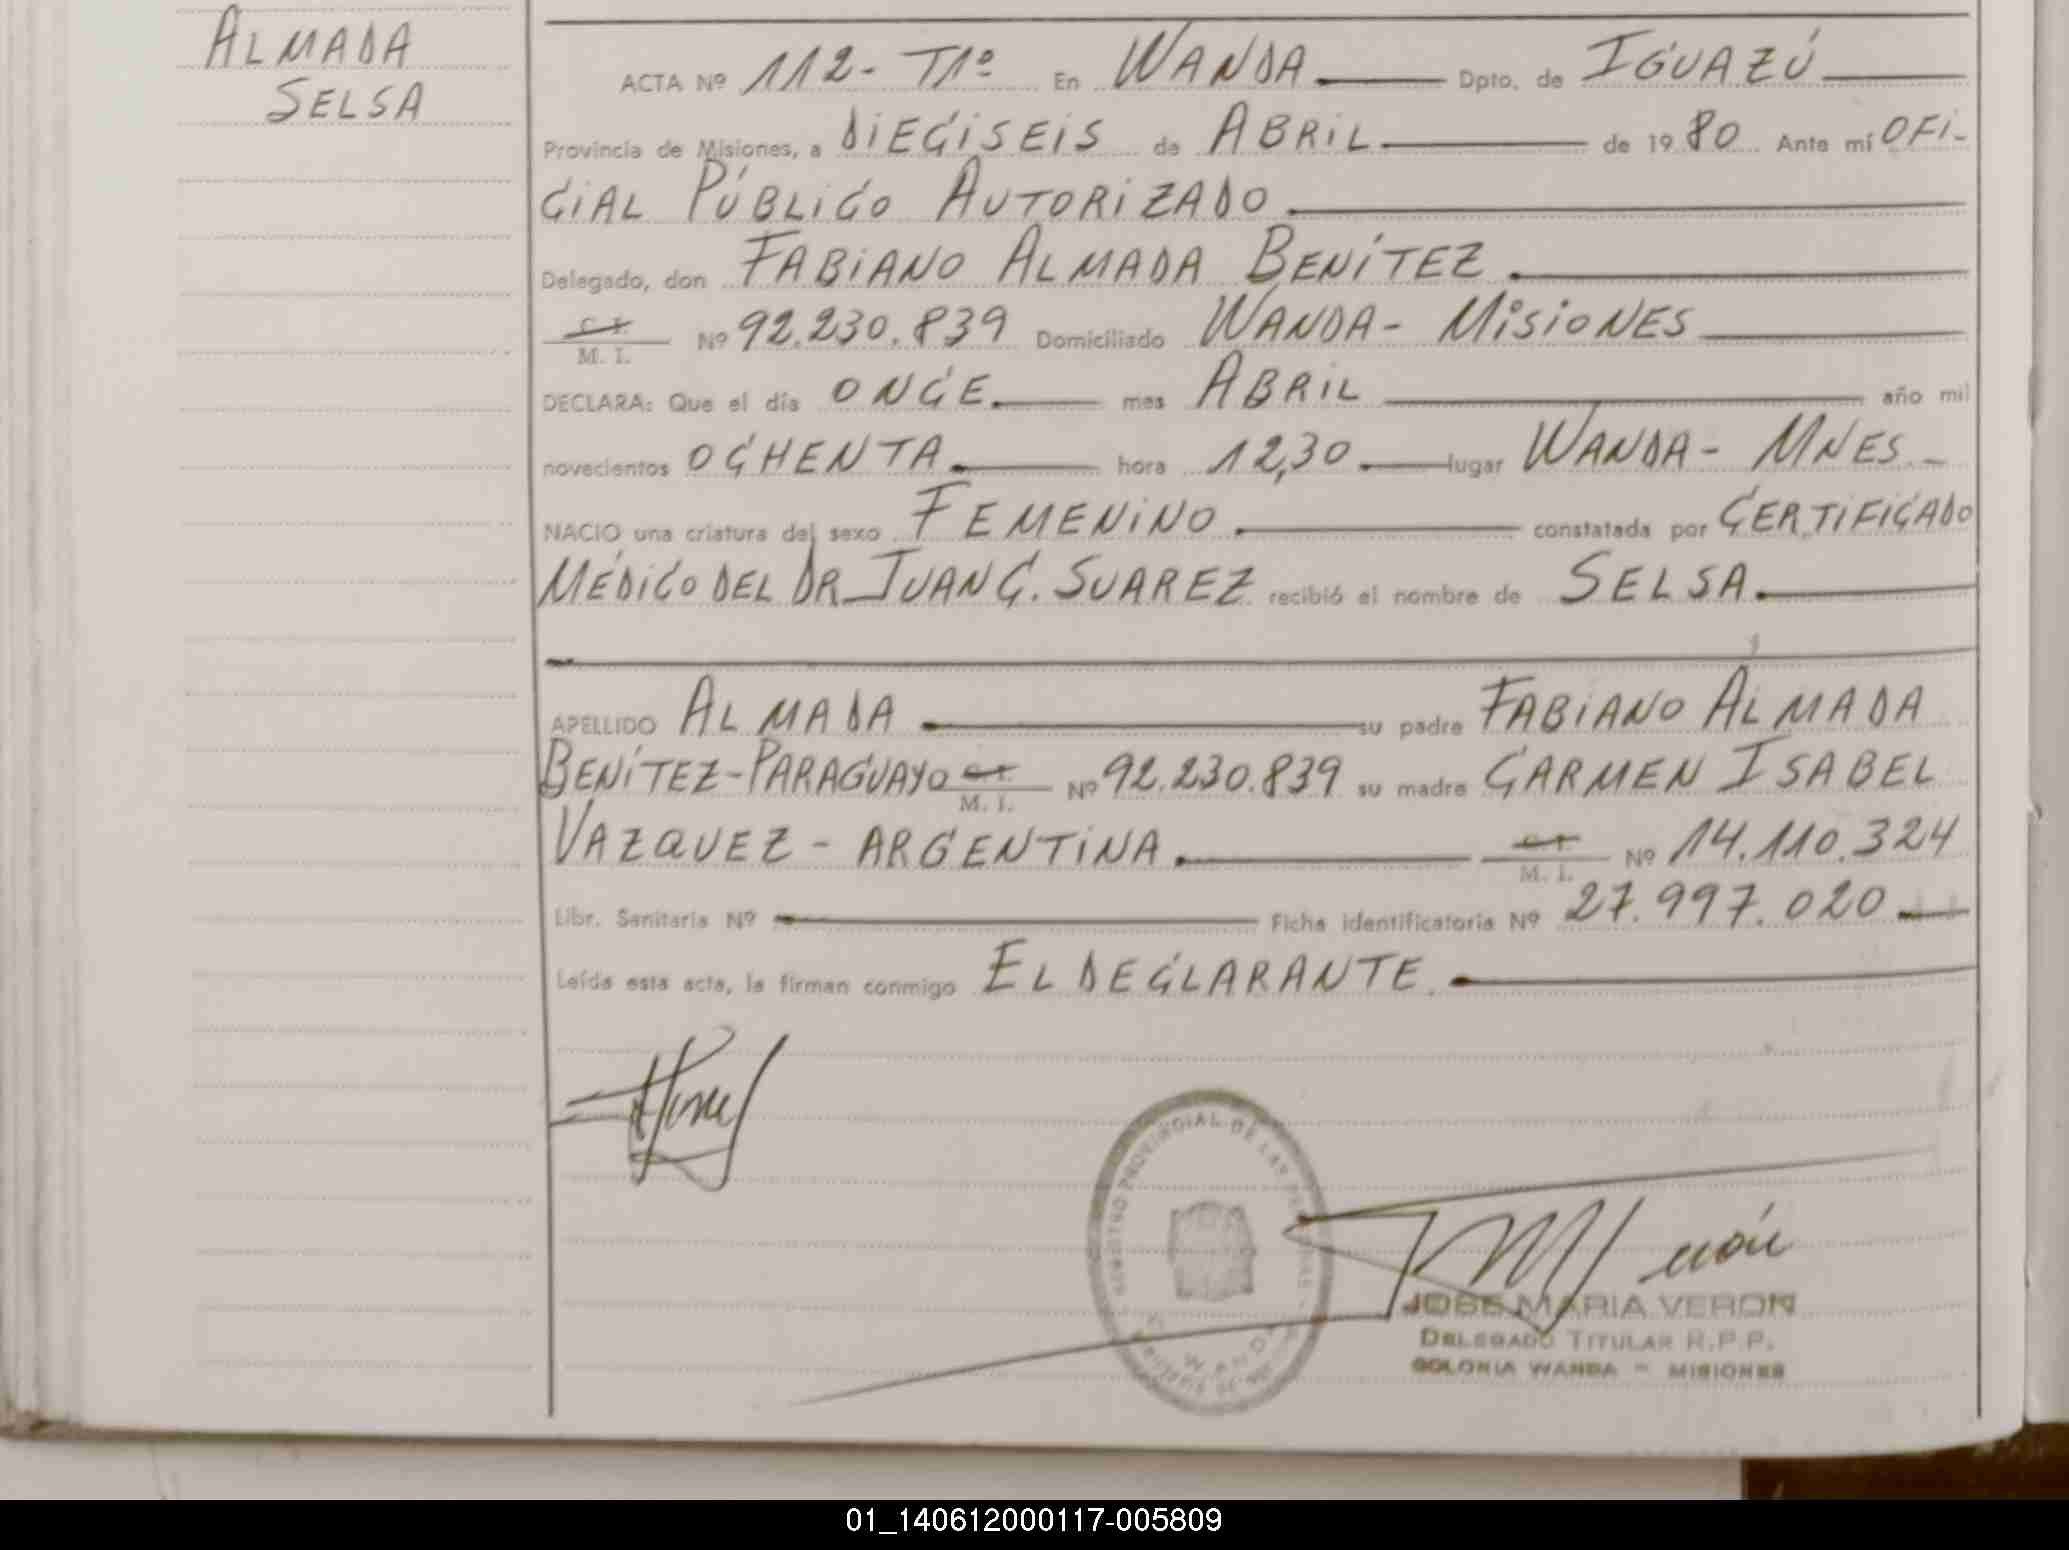 ALMADA
SELSA
ACTA Nº 112- T1º En WANDA Dpto. de IGUAZÚ
Provincia de Misiones, a DIECISEIS de ABRIL de 1980 Ante mí OFI-
CIAL PÚBLICO AUTORIZADO
Delegado, don FABIANO ALMADA BENÍTEZ
C. I.
M. I. Nº 92.230.839 Domiciliado WANDA- MISIONES
DECLARA: Que el día ONCE mes ABRIL año mil
novecientos OCHENTA hora 12,30 lugar WANDA- MNES
NACIO una criatura del sexo FEMENINO constatada por CERTIFICADO
MÉDICO DEL DR JUAN C. SUAREZ recibió el nombre de SELSA
APELLIDO ALMADA su padre FABIANO ALMADA
BENÍTEZ-PARAGUAYO C. I. M. I. Nº 92.230.839 su madre CARMEN ISABEL
VAZQUEZ - ARGENTINA C. I. M. I. Nº 14.110.324
Libr. Sanitaria Nº Ficha identificatoria Nº 27.997.020
Leída esta acta, la firman conmigo EL DECLARANTE
REGISTRO PROVINCIAL DE LAS PERSONAS
WANDA
JOSE MARIA VERON
DELEGADO TITULAR R.P.P.
COLONIA WANDA - MISIONES
01_140612000117-005809